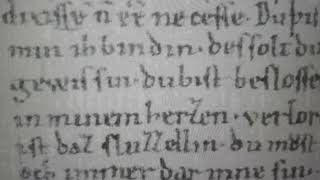 ne cesse. Du bis
min ih bin din. des solt du
gewis sin. du bist beslosse
in minem herzen. verlor
ist daz sluzzellin. du most
och immer dar inne sin.